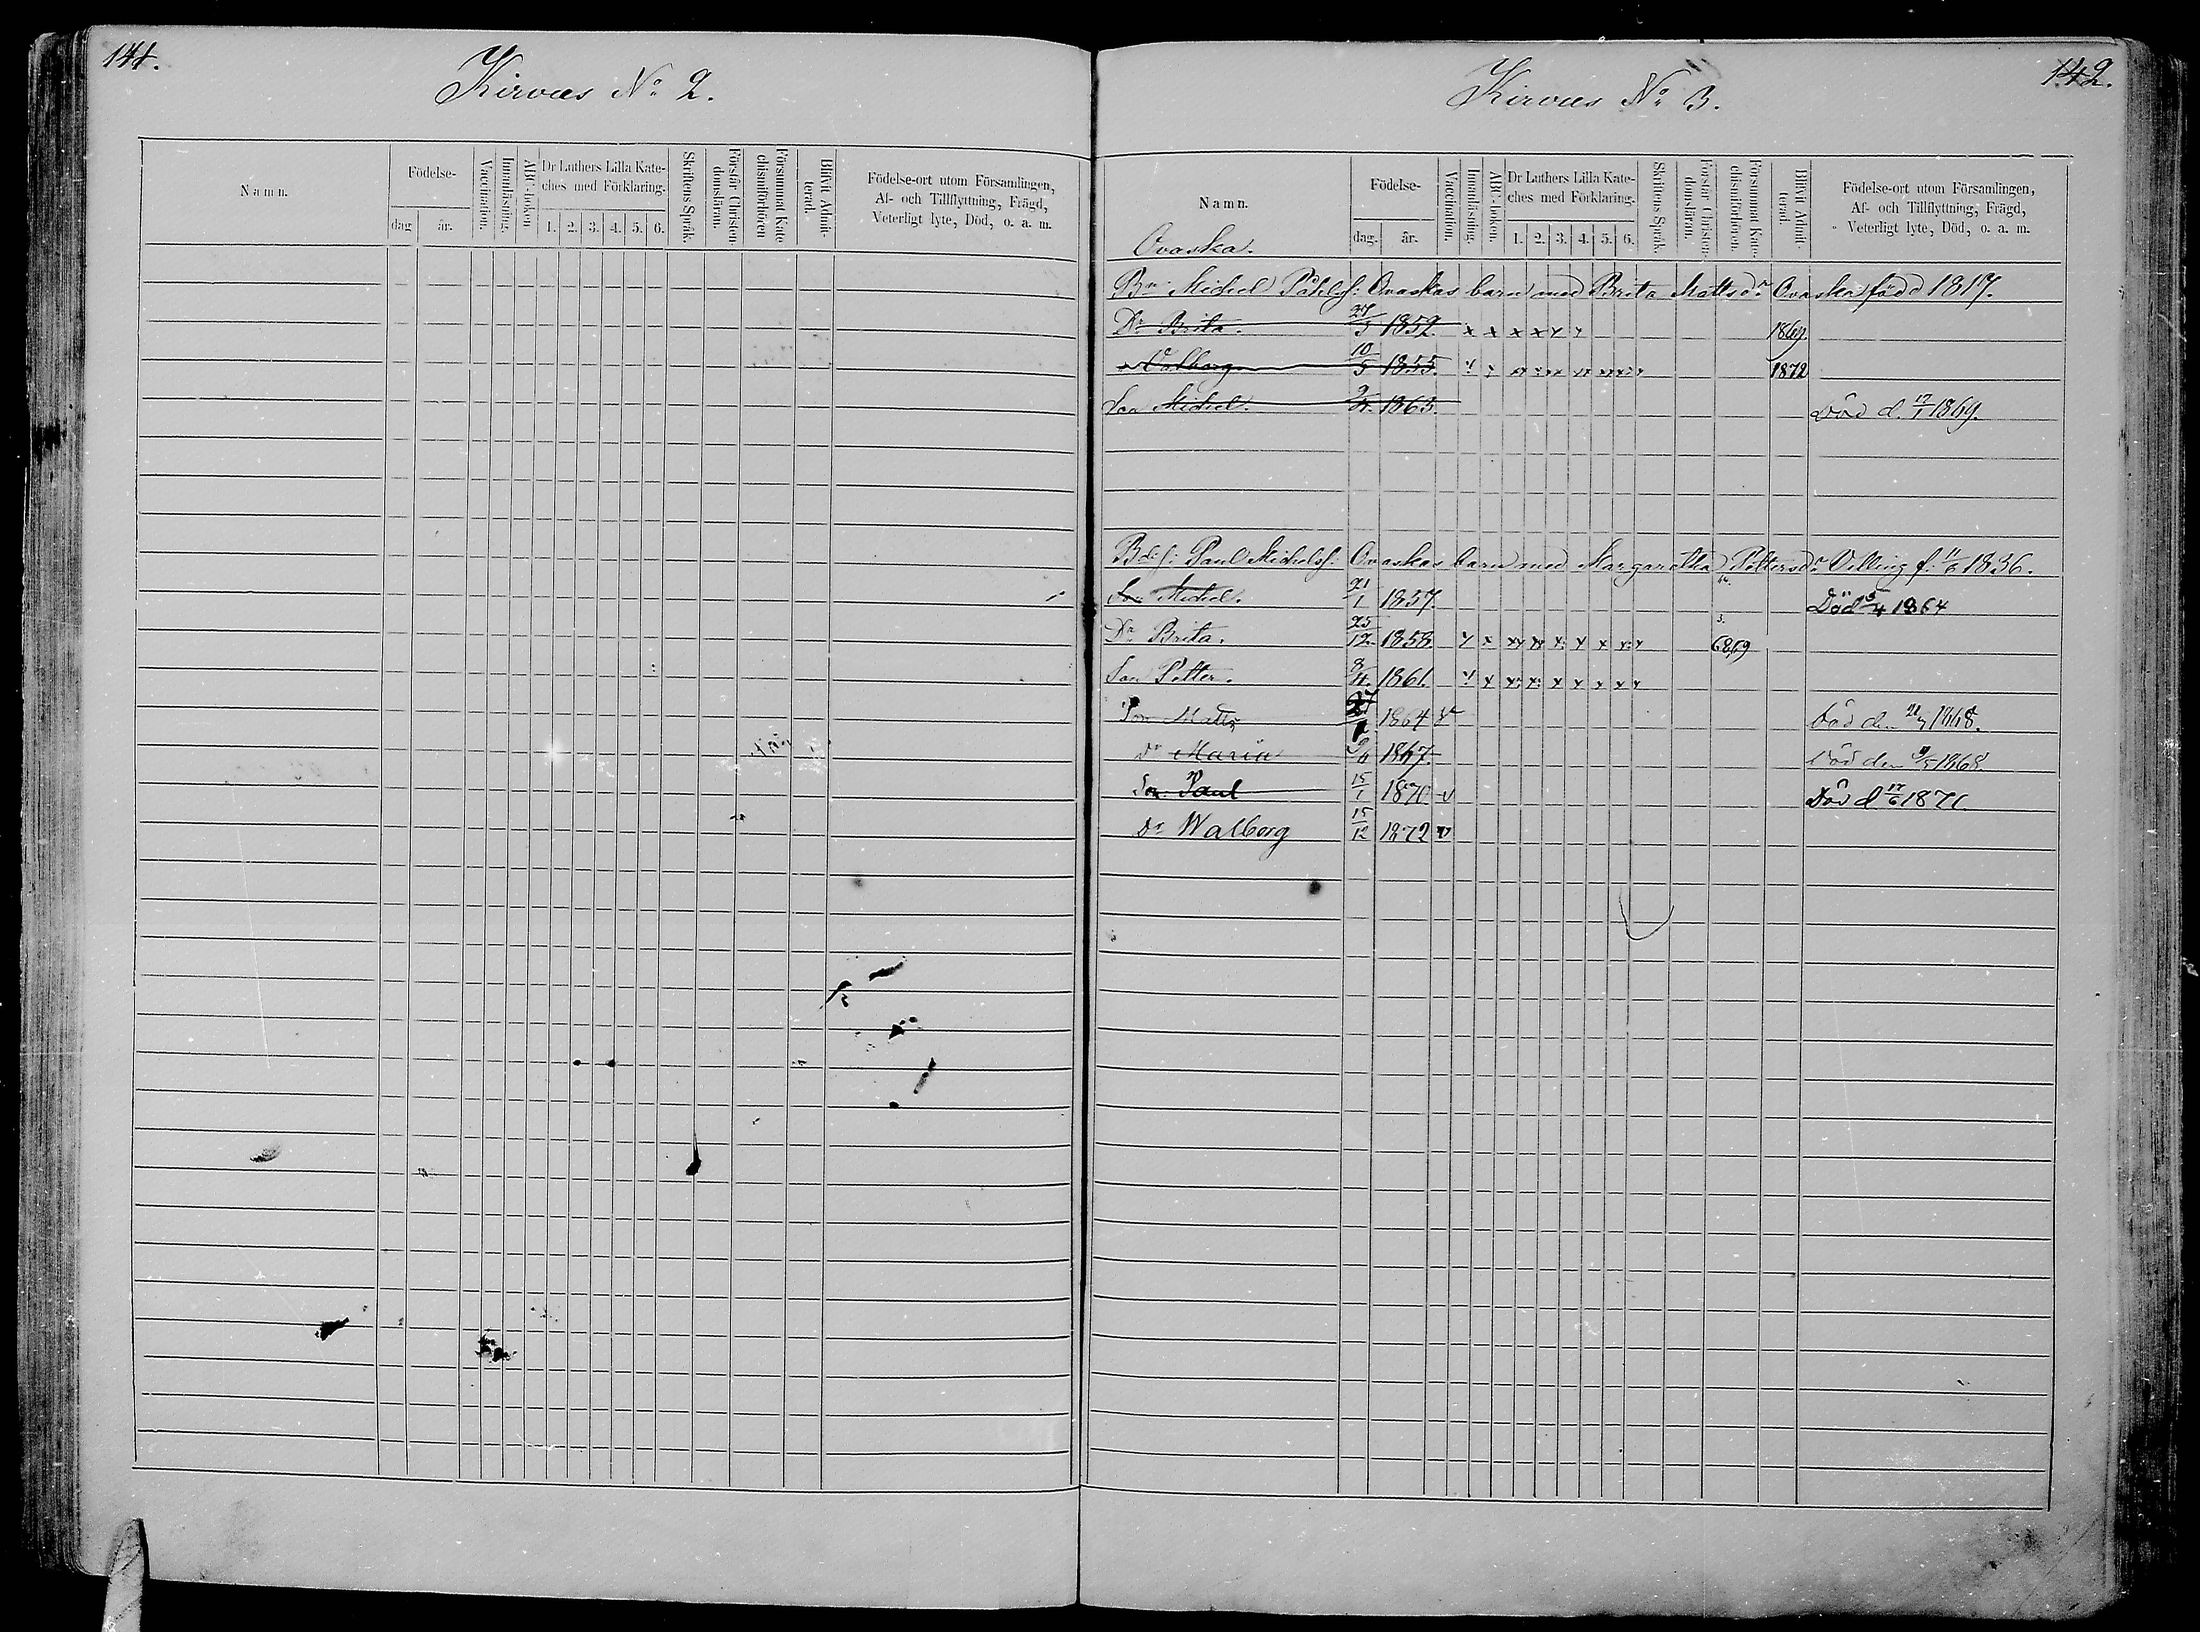 141.
Kirvus No 2.
Namn.
Födelse-
dag
år.
Vaccination.
Innanläsning.
ABC-boken
Dr Luthers Lilla Kate-
ches med Förklaring.
1. 2. 3. 4. 5. 6.
Skriftens Språk.
Förstår Christen-
domsläran.
Försummat Kate
chismiförhören
Blifvit Admit-
terad.
Födelse-ort utom Församlingen,
Af- och Tillflyttning, Frägd,
Veterligt lyte, Död, o. a. m.
142.
Kirvus No 3.
Namn.
Födelse-
dag. år.
Vaccination.
Innanläsning.
ABC-boken.
Dr Luthers Lilla Kate-
ches med Förklaring.
1. 2. 3. 4. 5. 6.
Skriftens Språk.
Förstår Christen-
domsläran.
Försummat Kate-
chismiförhören.
Blifvit Admit-
terad.
Födelse-ort utom Församlingen,
Af- och Tillflyttning, Frägd,
Veterligt lyte, Död, o. a. m.
Ovaska.
Bn Michel Påhlsf: Ovaskas barn med Brita Mattsdr Ovaska född 1817.
Dr Brita. 27/3 1852. x x x x x x 1869.
" Valborg 10/5 1855. 1872
Son Michel. 1863. Död d. 17/1 1869.
Paul Michelsf: Ovaskas barn med Margaretha Pettersdr Villing f: 11/6 1836.
Son Michel. 21/1 1857. Död 5/4 1864
Dr Brita. 25/12 1858. 6869
Son Petter. 8/4. 1861.
Son Matts 1864 Död den 1868.
Dr Maria 1867. Död den 1868
Son Paul 15/1 1870 v Död d 17/6 1871
Dr Walborg 15/12 1872 v